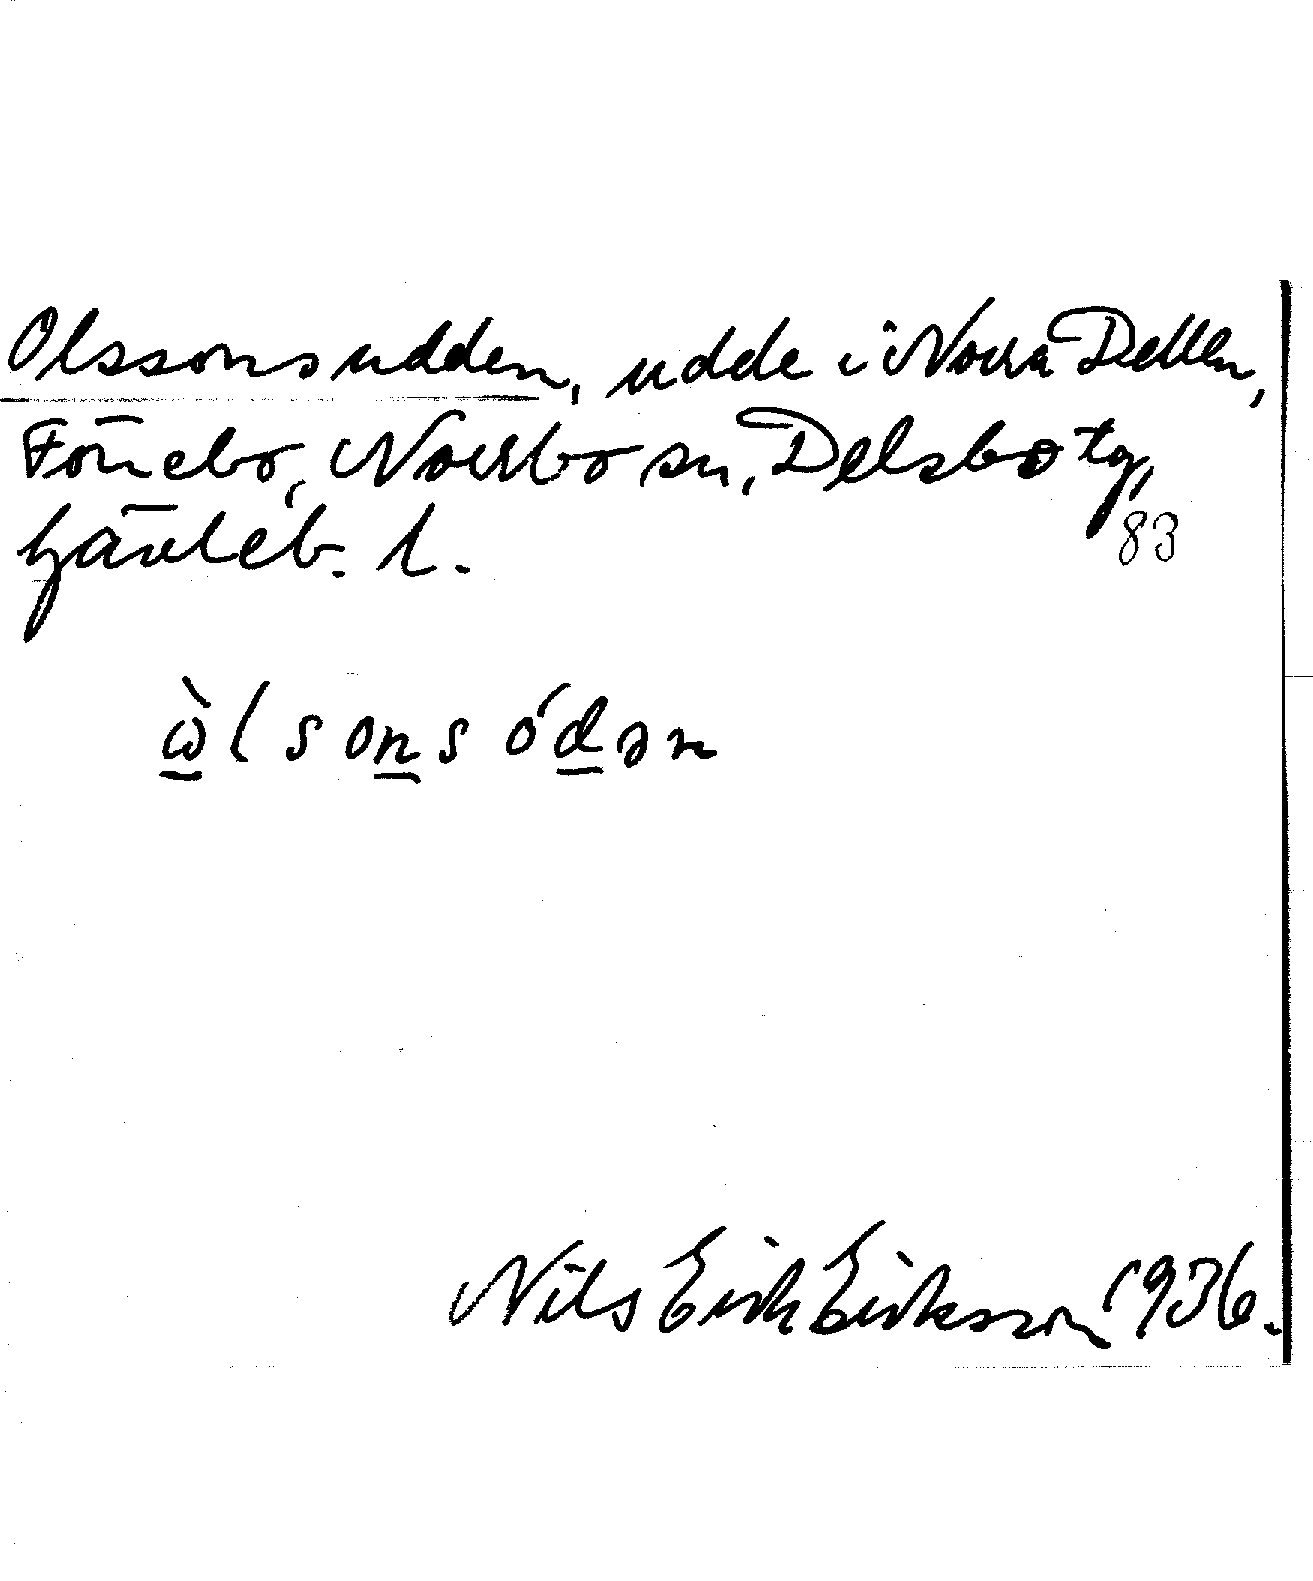 Olssonsudden, udde i Norra Dellen,
Fönebo, Norrbo sn, Delsbo tg,
Gävleb. l.
83
ὼlsonsódən
Nils Erik Eriksson 1936.